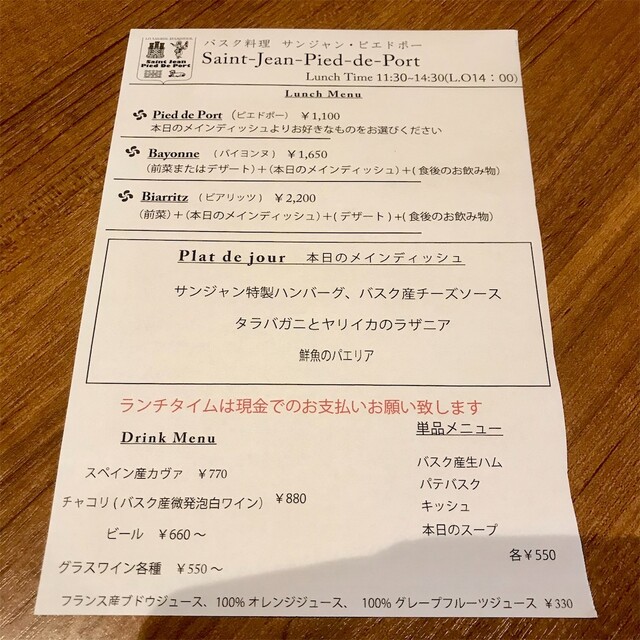 Saint Jean
Pied De Port
バスク料理 サンジャン・ピエドポー
Saint-Jean-Pied-de-Port
Lunch Time 11:30~14:30(L.O14：00)
Lunch Menu
Pied de Port （ピエドポー） ￥1,100
本日のメインディッシュよりお好きなものをお選びください
Bayonne （バイヨンヌ） ￥1,650
（前菜またはデザート）＋（本日のメインディッシュ）＋( 食後のお飲み物）
Biarritz （ビアリッツ） ￥2,200
（前菜）＋（本日のメインディッシュ）＋( デザート ) ＋( 食後のお飲み物）
Plat de jour 本日のメインディッシュ
サンジャン特製ハンバーグ、バスク産チーズソース
タラバガニとヤリイカのラザニア
鮮魚のパエリア
ランチタイムは現金でのお支払いお願い致します
Drink Menu
スペイン産カヴァ ￥770
チャコリ ( バスク産微発泡白ワイン） ￥880
ビール ￥660 ～
グラスワイン各種 ￥550 ～
単品メニュー
バスク産生ハム
パテバスク
キッシュ
本日のスープ
各￥550
フランス産ブドウジュース、100% オレンジジュース、 100% グレープフルーツジュース ￥330